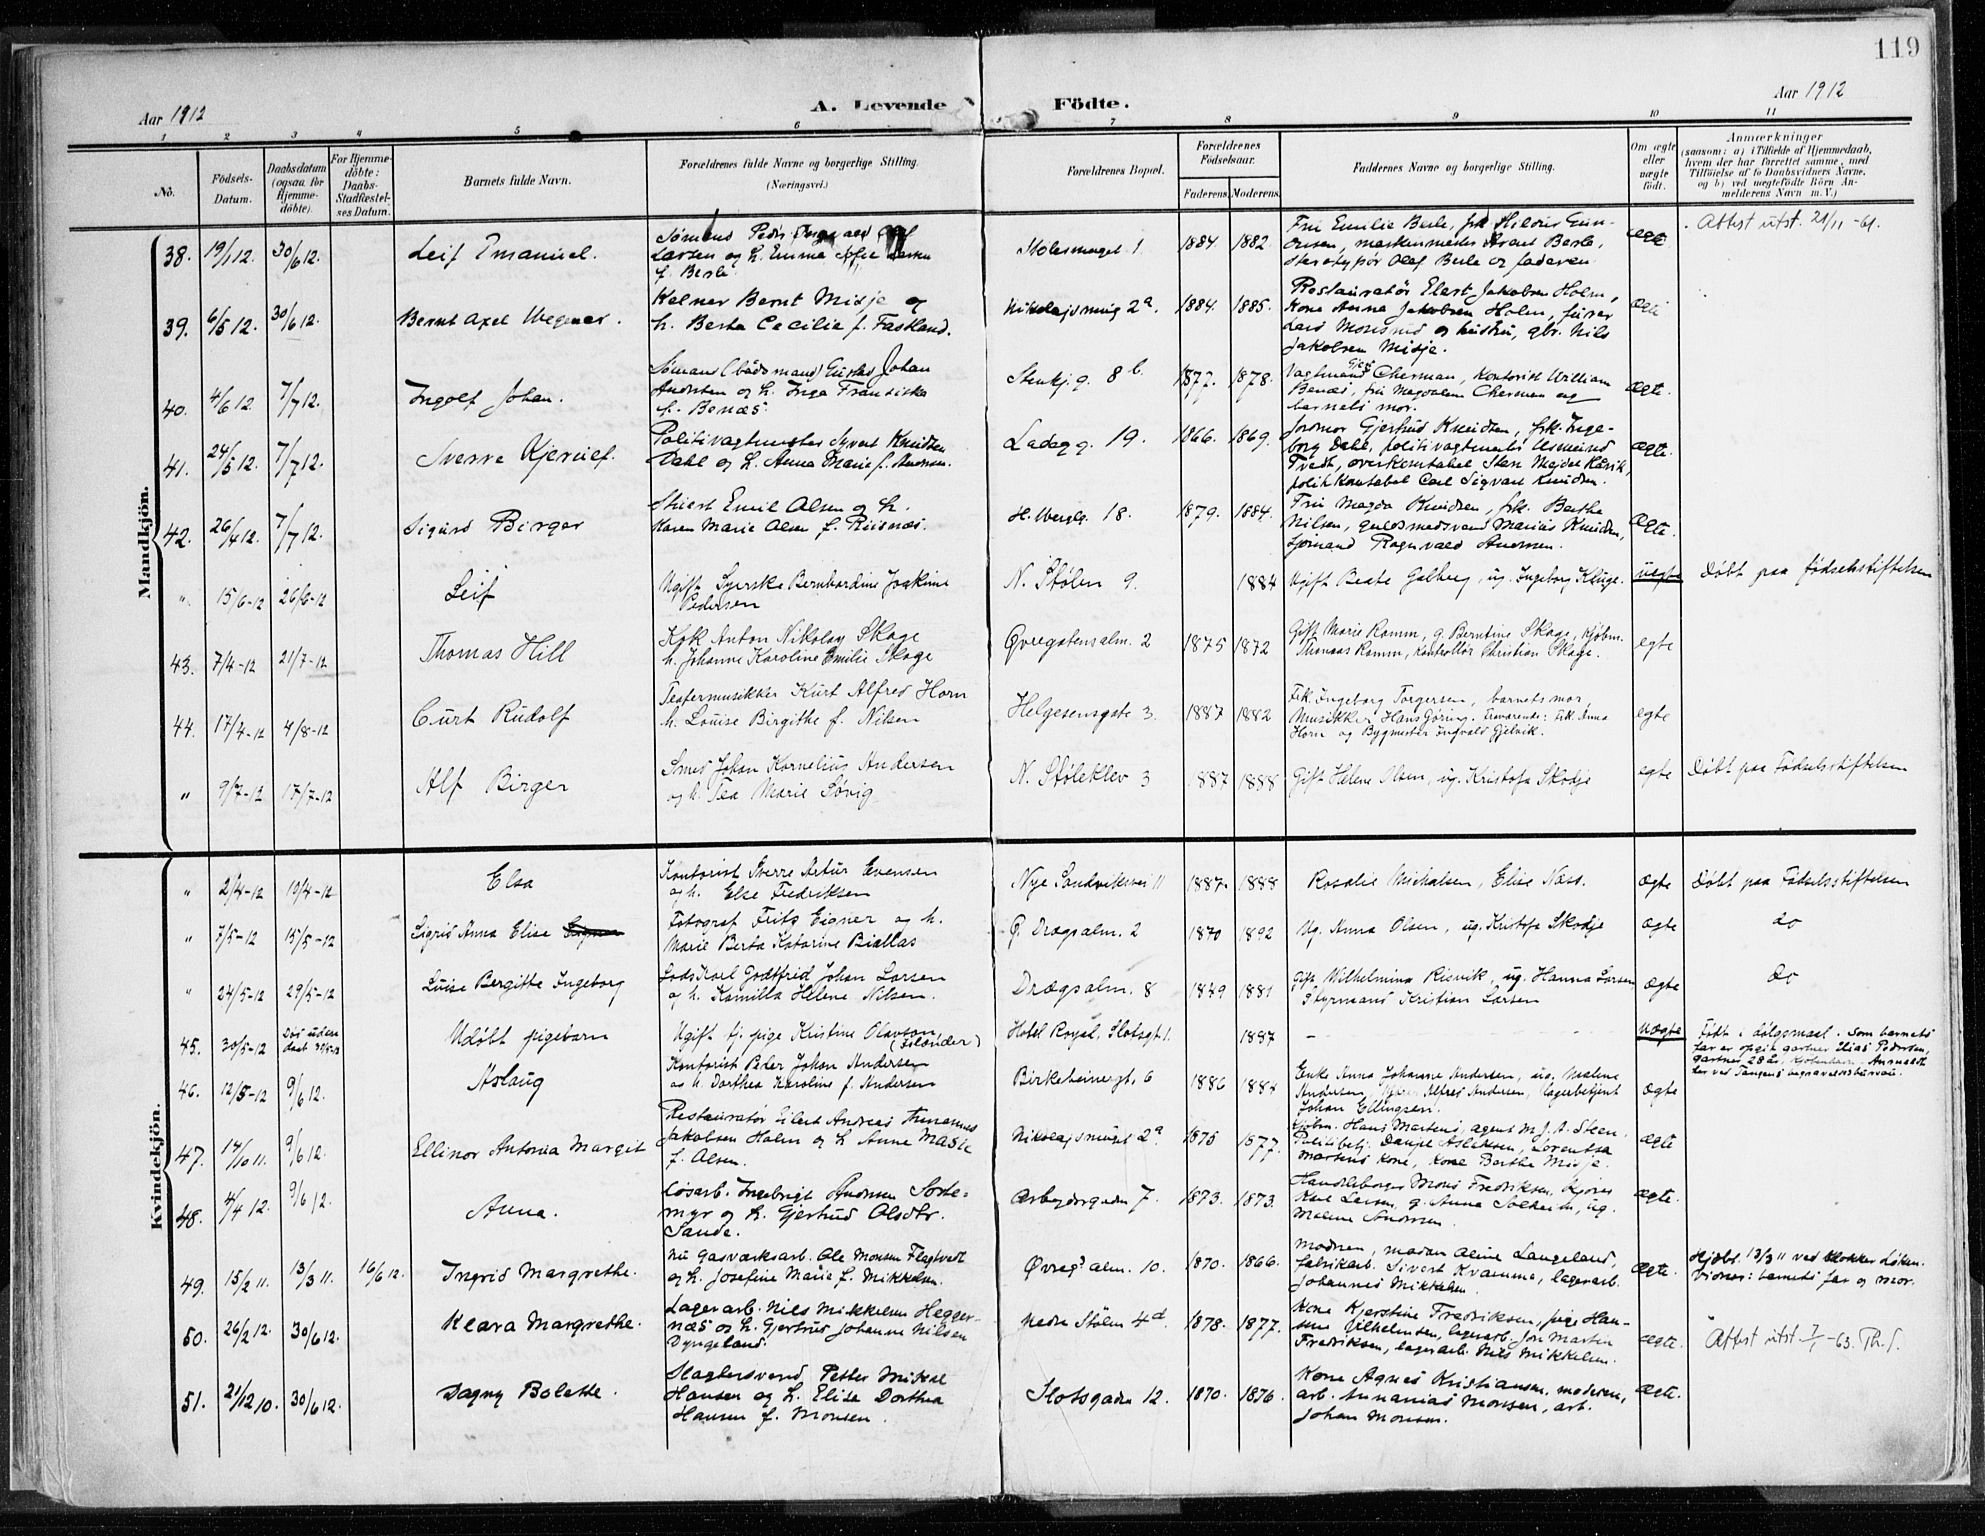 119
Aar 1912
A. Levende Födte.
Aar 1912
1 2 3 4 5 6 7 8 9 10 11
No.
Födsels-
Datum.
Daabsdatum
(ogsaa for
Hjemme-
döbte).
For Hjemme-
döbte:
Daabs-
Stadfæstel-
ses Datum.
Barnets fulde Navn.
Forældrenes fulde Navne og borgerlige Stilling.
(Næringsvei.)
Forældrenes Bopæl.
Forældrenes
Födselsaar.
Faderens. Moderens.
Faddernes Navne og borgerlige Stilling.
Om ægte
eller
uægte
födt.
Anmærkninger
(saasom: a) i Tilfælde af Hjemmedaab,
hvem der har forrettet samme, med
Tilföielse af to Daabsvidners Navne,
og b) ved uægtefödte Börn An-
melderens Navn m. V.)
Mandkjön.
38. 19/1 12. 30/6 12. Leif Emanuel.
Larsen og h. Emma Sofie Larsen
f. Berle.
1884. 1882.
Fru Emilie Berle, frk Hildur Gun-
stereotypör Olaf Berle og faderen.
ægte
Attest utst. 21/11 -61.
39. 6/5 12. 30/6 12. Bernt Axel Wegener.
Kelner Bernt Misje og
h. Berta Cecilie f. Fastland.
Nikolajsmug 2a. 1884. 1885.
Restauratør Elert Jakobsen Holm,
Kone Anna Jakobsen Holm, fyrer
Lars Monsund og hustru, gbr. Nils
Jakobsen Misje.
ægte
40. 4/6 12. 7/7 12. Ingolf Johan.
Sömand (bådsmand) Gustav Johan
Andersen og h. Inga Fransiska
f. Benæs.
Stenkjg. 8 b. 1877. 1878.
Vagtmand Cherman, Kontorist William
Benæs, fru Magdalene Cherman og
barnets mor.
ægte.
41. 24/5 12. 7/7 12. Sverre Kjerulf.
Politivagtmester Syvert Knudsen
Dahl og h. Anna Marie f. Andersen.
Ladegg. 19. 1866. 1869.
Jormor Gjertrud Knudsen, frk. Inge-
borg Dahl, politivagtmester Asmund
Tvedt, overkonstabel Sten
politikonstabel Carl Sigvart Knudsen.
ægte.
42. 26/4 12. 7/7 12. Sigurd Birger
Emil Olsen og h.
Karen Marie Olsen f. Risnæs.
H. Wergelg. 18. 1879. 1884.
Fru Magda Knudsen, frk. Berthe
Nilsen, guldsmedsvend Marius Knudsen,
sjømand Ragnvald Andersen.
ægte.
" 15/6-12 26/6-12 Leif
Ugift Syerske Bernhardine Joakime
Pedersen
N. Stølen 9. 1884
Ugift Beate Galberg, ug. Ingeborg Kluge.
uegte
Døbt paa Fødselsstiftelsen
43. 7/4-12 21/7-12 Thomas Hill
Kok Anton Nikolay Skage
h. Johanne Karoline Emilie Skage
Øvregatensalm. 2 1875 1872
Gift Marie Romm, g. Berntine Skage, kjøbm.
Thomas Romm, kontrollör Christian Skage.
egte
44. 17/4-12 4/8-12 Curt Rudolf
Teatermusikker Kurt Alfred Horn
h. Louise Birgithe f. Nilsen
Helgesensgate 3. 1887 1882
Frk. Ingeborg Torgersen, barnets mor
Musikker Hans Göring. Fraværende: Frk. Anna
Horn og Bygmester Ingvald Gjelvik.
egte
" 9/7-12 17/7-12 Alf Birger
Smed Johan Kornelius Andersen
og h. Tea Marie Søvig
N. Stöleklev 3 1887 1888
Gift Helene Olsen, ug. Kristofa Skodje
egte
Døbt paa Fødselsstiftelsen
Kvindekjön.
" 2/4-12 19/4-12 Elsa
Kontorist Sverre Artur Evensen
og h. Else Fredriksen
Nye Sandviksvei 11 1887. 1888
Rosalie Michalsen, Elise Næss.
ægte
Døbt paa Fødselsstiftelsen
" 7/5-12 15/5-12 Sigrid Anna Elise
Fotograf Fritz Eigner og h.
Marie Berta Katarine Biallas
Ø. Drægsalm. 2 1870 1892
Ug. Anna Olsen, ug. Kristofa Skodje
ægte
do
" 24/5-12 29/5-12 Luise Bergitte Ingeborg
Lods Karl Godtfrid Johan Larsen
og h. Kamilla Helene Nilsen.
Drægsalm. 8 1849 1881
Gift Wilhelmina Risvik, ug. Hanna Larsen
Styrmand Kristian Larsen
ægte
do
45. 30/5-12 Död uden
daab
Udöbt pigebarn
Ugift tj. pige Kristine Olavson
(Islænder)
Hotel Royal, Slotsgt 1. 1887
—
uægte
Født i dølgsmaal. Som barnets
far er opgit gartner Elias Pedersen,
gartner 28 år, København. Anmeldt
her ved Tangens begravelsesbureau.
46. 12/5-12 9/6 12. Aslaug
Kontorist Peder Johan Andersen
og h. Dorthea Karoline f. Andersen
Birkebeinergt. 6 1886 1888
Enke Anna Johanne Andersen, ug. Malene
Andersen, Alfred Andersen, Lagerbetjent
Johan Ellingsen.
ægte
47. 14/10 11. 9/6 12. Ellinor Antonia Margit
Restauratør Eilert Andreas
Jakobsen Holm og h. Anne Marie
f. Olsen.
Nikolajsmuget 2a. 1875 1877.
Kjøbm. Hans Martens, agent M. J. A. Steen.
Politibetj. Daniel Aslaksen, Lorentsa
Martens kone, Kone Berthe Misje.
ægte
48. 4/4 12. 9/6 12. Anna.
Løsarb. Ingebrigt Andersen Sorte-
myr og h. Gjertrud Olsdtr.
Sande.
Arbeidergaden 7. 1873. 1873.
Handelsborger Mons Fredriksen, kjører
Karl Larsen, g. Anna Solheim, ug.
Malene Andersen
ægte.
49. 15/2 11. 13/3 11. 16/6 12. Ingrid Margrethe.
nu gasværksarb. Ole Monsen Flagtvedt
og h. Josefine Marie f. Mikkelsen.
Øvregs alm. 10. 1870. 1866.
Modren, madam Aline Langeland,
fabrikarb. Sivert Kvamme, lagerarb.
Johannes Mikkelsen.
ægte.
Hjdbt. 13/3 11 ved klokker Løken.
Vidner: barnets far og mor.
50. 26/2 12. 30/6 12. Klara Margrethe.
Lagerarb. Nils Mikkelsen Hegger-
næs og h. Gjertrud Johanne Nilsen
Dyngeland.
Nedre Stølen 4d. 1878. 1877.
Kone Kjerstine Fredriksen, pige Han-
sine Vilhelmsen, lagerarb. Jon Martin
Fredriksen, lagerarb. Nils Mikkelsen.
ægte.
Attest utst 7/1 -63. Th. S.
51. 21/12 10. 30/6 12. Dagny Bolette.
Slagtersvend Petter Mikal
Hansen og h. Elise Dorthea
Hansen f. Monsen.
Slotsgaden 12. 1870. 1876.
Kone Agnes Kristiansen, moderen,
arb. Ananias Monsen, arb.
Johan Monsen.
ægte.